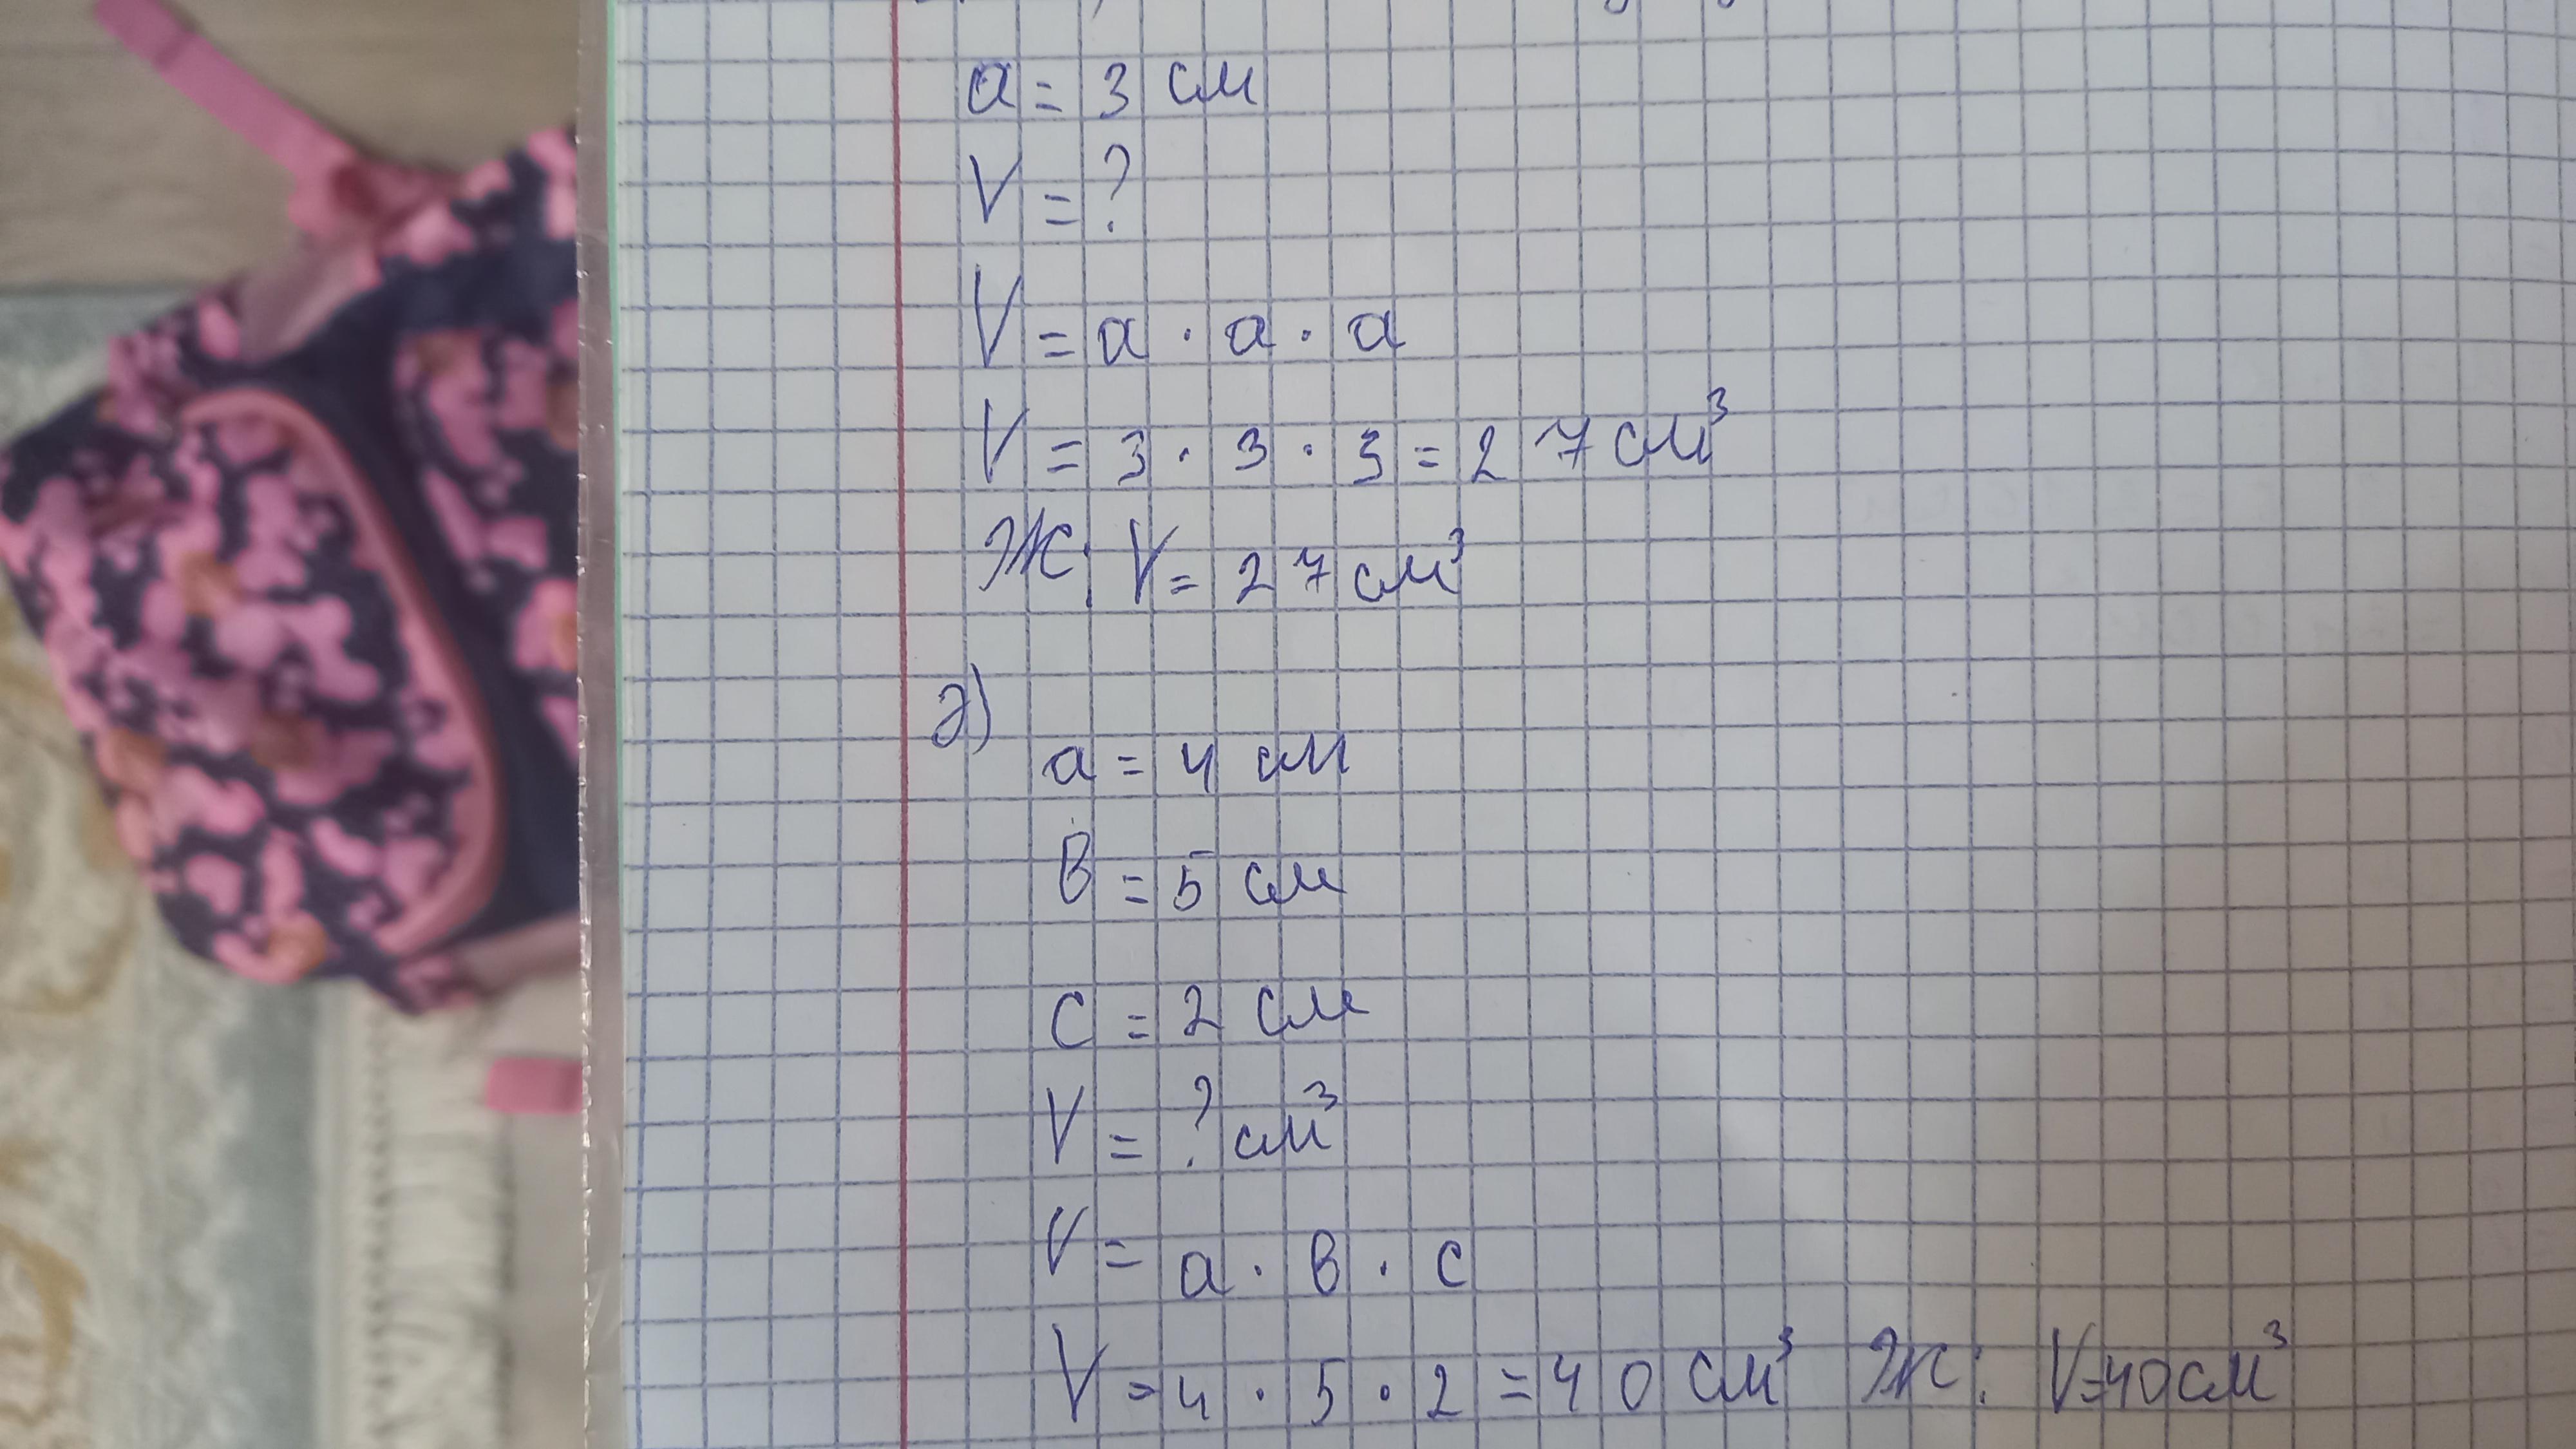 a = 3 см
V = ?
V = a · a · a
V = 3 · 3 · 3 = 27 см³
Ж: V = 27 см³
ə)
a = 4 см
в = 5 см
c = 2 см
V = ? см³
V = a · в · c
V = 4 · 5 · 2 = 40 см³ Ж: V=40см³